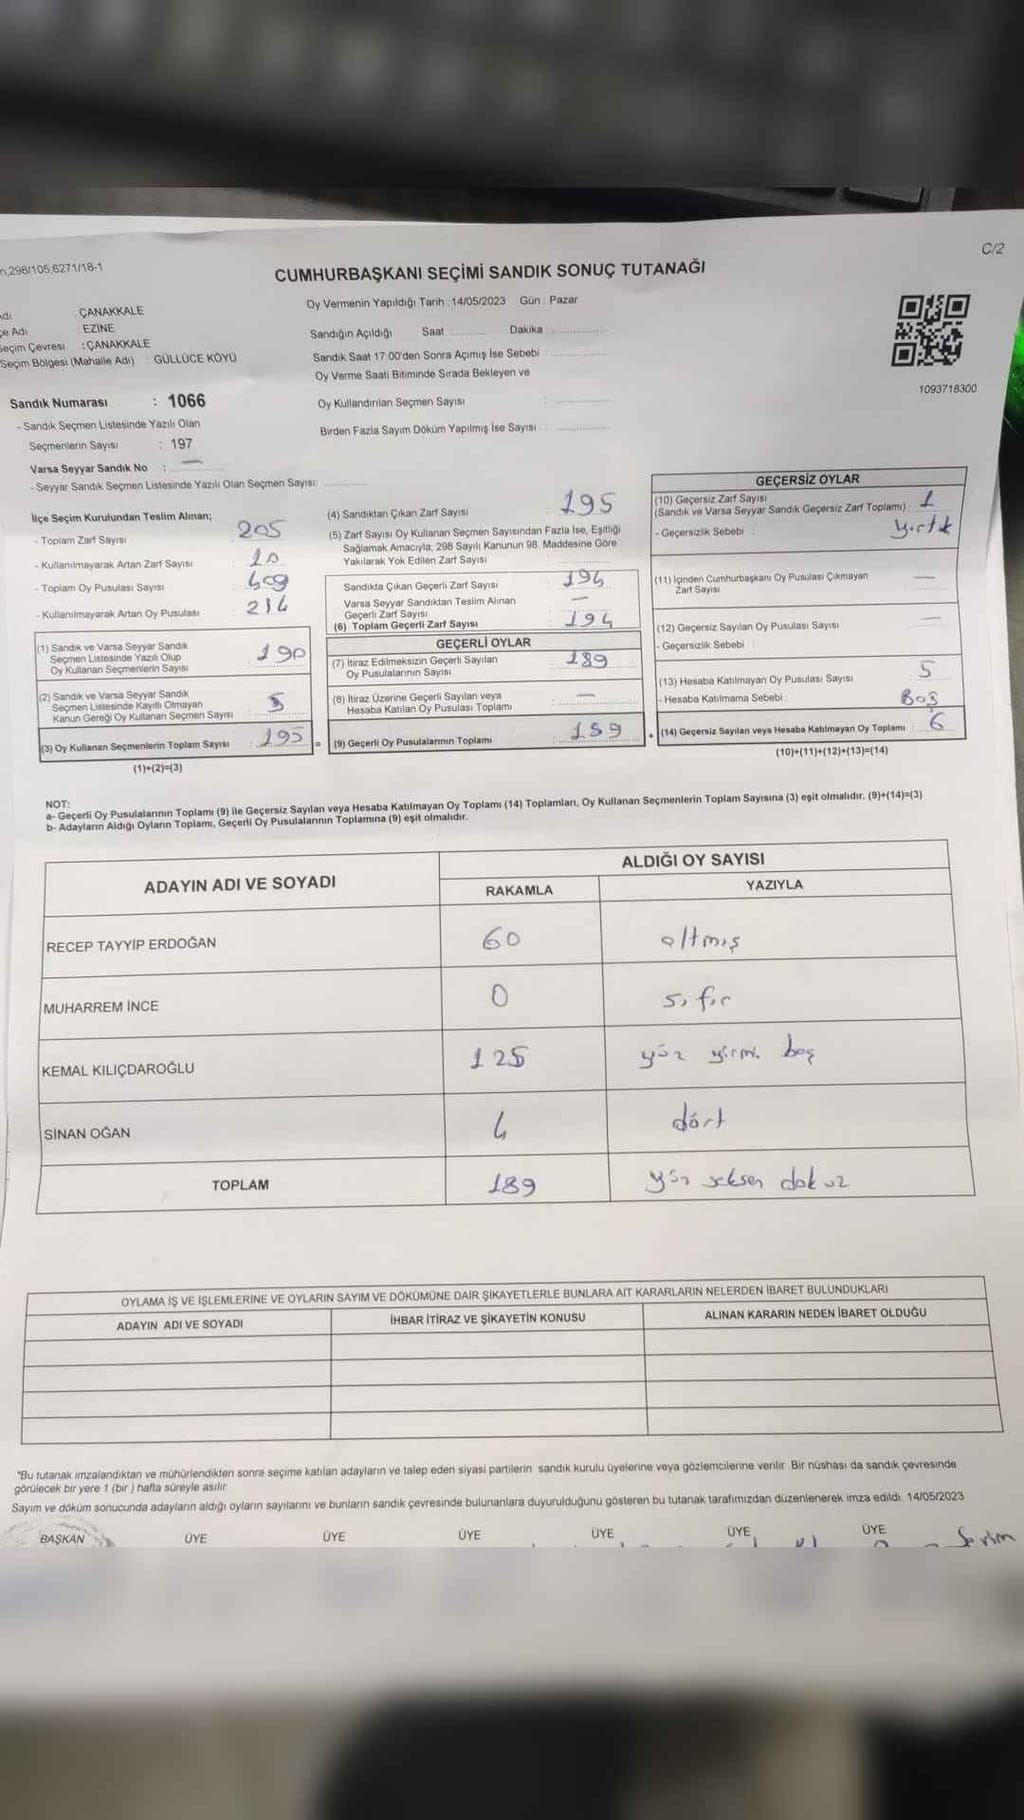 C/2
298/105,6271/18-1
CUMHURBAŞKANI SEÇİMİ SANDIK SONUÇ TUTANAĞI
Oy Vermenin Yapıldığı Tarih : 14/05/2023 Gün : Pazar
: ÇANAKKALE
Adı : EZİNE
Seçim Çevresi : ÇANAKKALE
Seçim Bölgesi (Mahalle Adı) : GÜLLÜCE KÖYÜ
Sandık Numarası : 1066
- Sandık Seçmen Listesinde Yazılı Olan
Seçmenlerin Sayısı : 197
Varsa Seyyar Sandık No : —
- Seyyar Sandık Seçmen Listesinde Yazılı Olan Seçmen Sayısı:
Sandığın Açıldığı Saat Dakika
Sandık Saat 17.00'den Sonra Açımış İse Sebebi :
Oy Verme Saati Bitiminde Sırada Bekleyen ve
Oy Kullandırılan Seçmen Sayısı :
Birden Fazla Sayım Döküm Yapılmış İse Sayısı :
1093718300
İlçe Seçim Kurulundan Teslim Alınan;
- Toplam Zarf Sayısı : 205
- Kullanılmayarak Artan Zarf Sayısı : 10
- Toplam Oy Pusulası Sayısı : 409
- Kullanılmayarak Artan Oy Pusulası : 214
(1) Sandık ve Varsa Seyyar Sandık
Seçmen Listesinde Yazılı Olup
Oy Kullanan Seçmenlerin Sayısı : 190
(2) Sandık ve Varsa Seyyar Sandık
Seçmen Listesinde Kayıtlı Olmayan
Kanun Gereği Oy Kullanan Seçmen Sayısı : 5
(3) Oy Kullanan Seçmenlerin Toplam Sayısı : 195 =
(1)+(2)=(3)
(4) Sandıktan Çıkan Zarf Sayısı : 195
(5) Zarf Sayısı Oy Kullanan Seçmen Sayısından Fazla İse, Eşitliği
Sağlamak Amacıyla; 298 Sayılı Kanunun 98. Maddesine Göre
Yakılarak Yok Edilen Zarf Sayısı
Sandıkta Çıkan Geçerli Zarf Sayısı : 194
Varsa Seyyar Sandıktan Teslim Alınan
Geçerli Zarf Sayısı : —
(6) Toplam Geçerli Zarf Sayısı : 194
GEÇERLİ OYLAR
(7) İtiraz Edilmeksizin Geçerli Sayılan
Oy Pusulalarının Sayısı : 189
(8) İtiraz Üzerine Geçerli Sayılan veya
Hesaba Katılan Oy Pusulası Toplamı : —
(9) Geçerli Oy Pusulalarının Toplamı : 189 +
GEÇERSİZ OYLAR
(10) Geçersiz Zarf Sayısı
(Sandık ve Varsa Seyyar Sandık Geçersiz Zarf Toplamı) : 1
- Geçersizlik Sebebi : yırtık
(11) İçinden Cumhurbaşkanı Oy Pusulası Çıkmayan
Zarf Sayısı : —
(12) Geçersiz Sayılan Oy Pusulası Sayısı : —
- Geçersizlik Sebebi :
(13) Hesaba Katılmayan Oy Pusulası Sayısı : 5
- Hesaba Katılmama Sebebi : Boş
(14) Geçersiz Sayılan veya Hesaba Katılmayan Oy Toplamı : 6
(10)+(11)+(12)+(13)=(14)
NOT:
a- Geçerli Oy Pusulalarının Toplamı (9) ile Geçersiz Sayılan veya Hesaba Katılmayan Oy Toplamı (14) Toplamları, Oy Kullanan Seçmenlerin Toplam Sayısına (3) eşit olmalıdır. (9)+(14)=(3)
b- Adayların Aldığı Oyların Toplamı, Geçerli Oy Pusulalarının Toplamına (9) eşit olmalıdır.
ADAYIN ADI VE SOYADI ALDIĞI OY SAYISI
RAKAMLA YAZIYLA
RECEP TAYYİP ERDOĞAN 60 altmış
MUHARREM İNCE 0 sıfır
KEMAL KILIÇDAROĞLU 125 yüz yirmi beş
SİNAN OĞAN 4 dört
TOPLAM 189 yüz seksen dokuz
OYLAMA İŞ VE İŞLEMLERİNE VE OYLARIN SAYIM VE DÖKÜMÜNE DAİR ŞİKAYETLERLE BUNLARA AİT KARARLARIN NELERDEN İBARET BULUNDUKLARI
ADAYIN ADI VE SOYADI İHBAR İTİRAZ VE ŞİKAYETİN KONUSU ALINAN KARARIN NEDEN İBARET OLDUĞU
*Bu tutanak imzalandıktan ve mühürlendikten sonra seçime katılan adayların ve talep eden siyasi partilerin sandık kurulu üyelerine veya gözlemcilerine verilir. Bir nüshası da sandık çevresinde
görülecek bir yere 1 (bir ) hafta süreyle asılır.
Sayım ve döküm sonucunda adayların aldığı oyların sayılarını ve bunların sandık çevresinde bulunanlara duyurulduğunu gösteren bu tutanak tarafımızdan düzenlenerek imza edildi. 14/05/2023
BAŞKAN ÜYE ÜYE ÜYE ÜYE ÜYE ÜYE